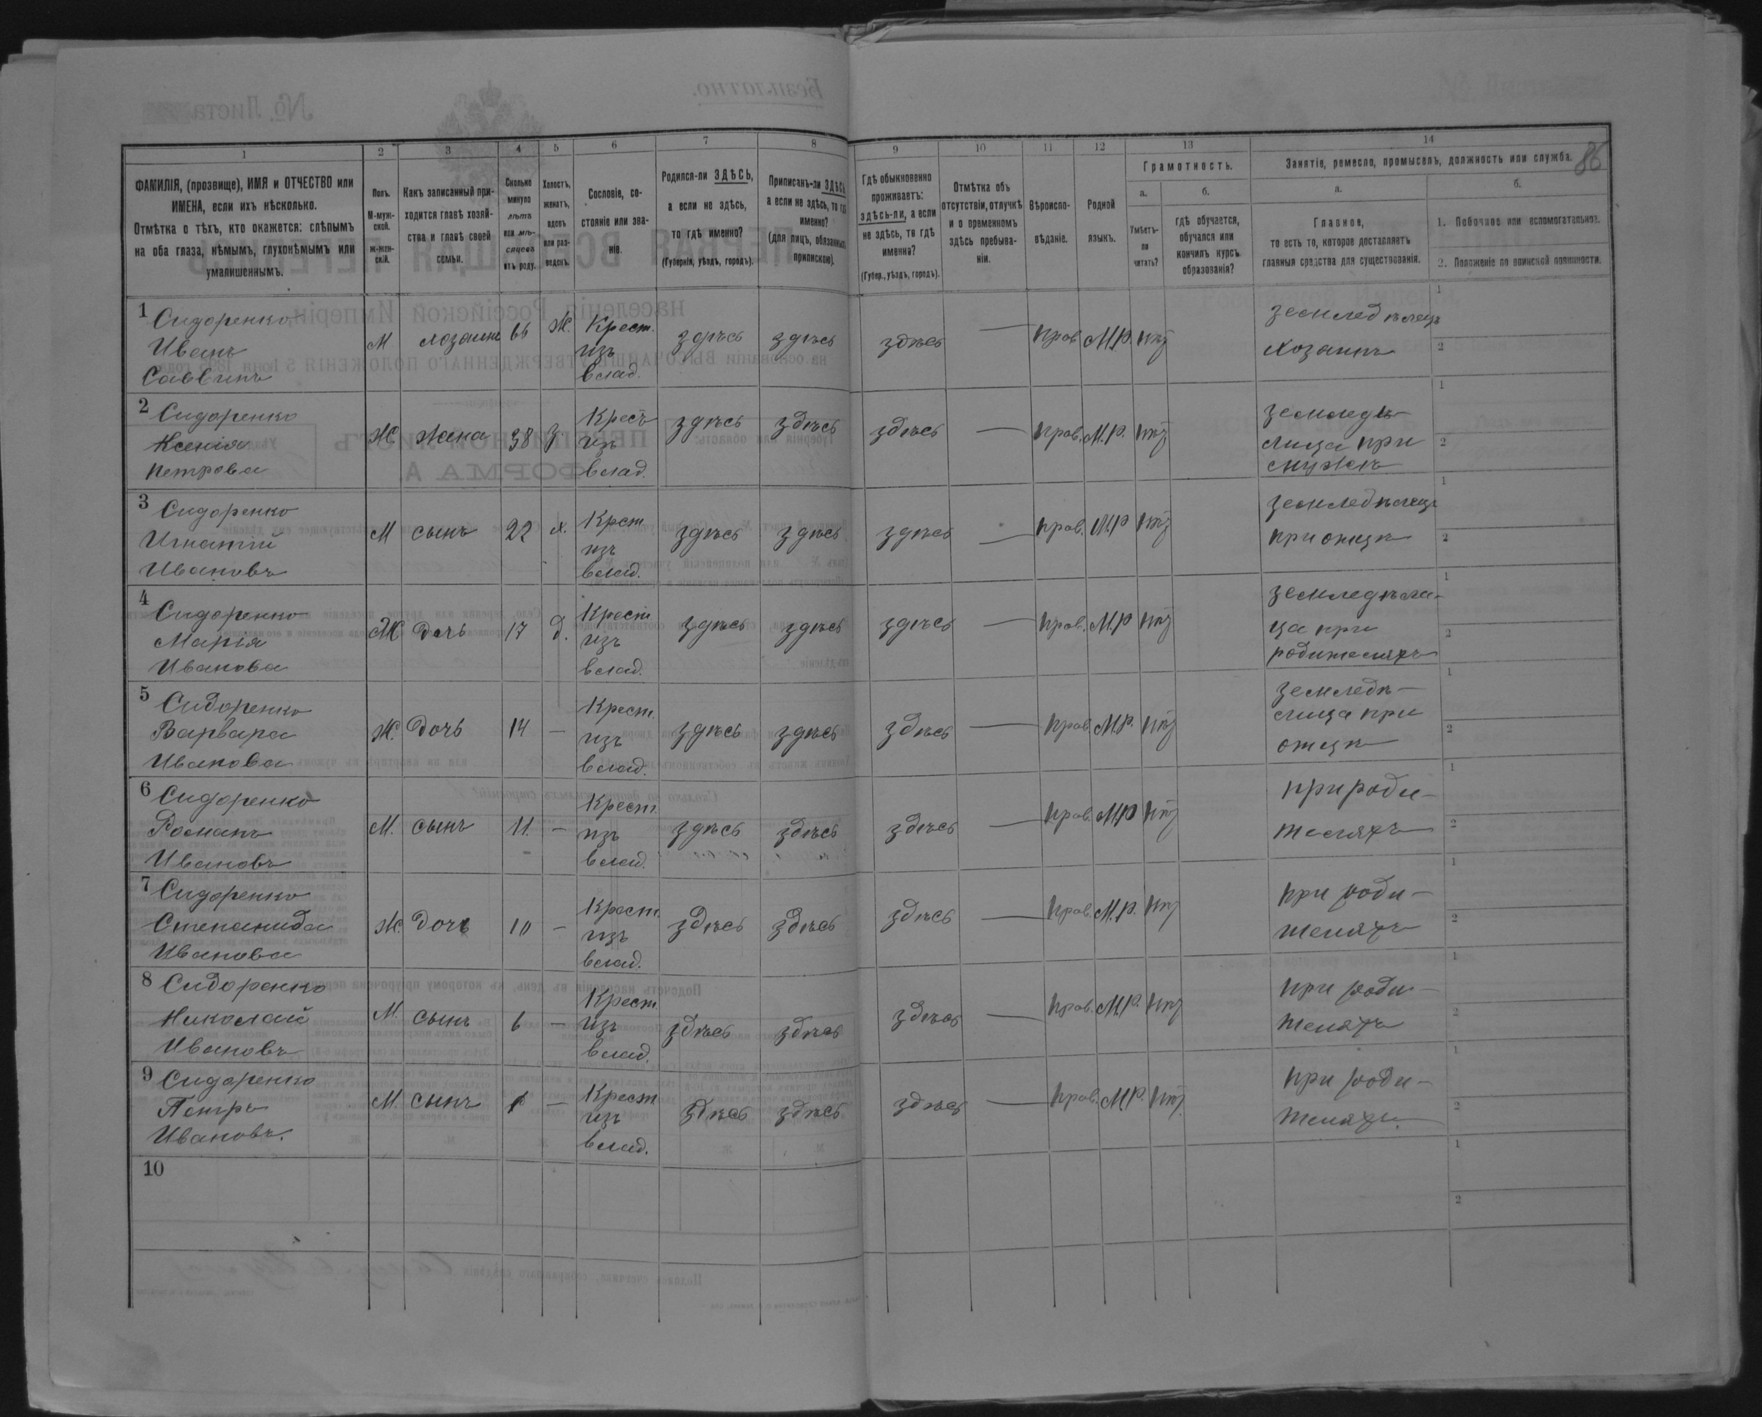 86
1 2 3 4 5 6 7 8 9 10 11 12 13 14
ФАМИЛІЯ, (прозвище), ИМЯ и ОТЧЕСТВО или ИМЕНА, если ихъ нѣсколько.
Отмѣтка о тѣхъ, кто окажется: слѣпымъ на оба глаза, нѣмымъ, глухонѣмымъ или умалишеннымъ.
Полъ.
М-муж-
ской.
Ж-жен-
скій.
Какъ записанный при-
ходится главѣ хозяй-
ства и главѣ своей
семьи.
Сколько
минуло
лѣтъ
или мѣ-
сяцевъ
отъ роду.
Холостъ,
женатъ,
вдовъ
или раз-
веденъ.
Сословіе, со-
стояніе или зва-
ніе.
Родился-ли ЗДѢСЬ,
а если не здѣсь,
то гдѣ именно?
(Губернія, уѣздъ, городъ).
Приписанъ-ли ЗДѢСЬ
а если не здѣсь, то гдѣ
именно?
(для лицъ, обязанныхъ
припискою).
Гдѣ обыкновенно
проживаетъ:
здѣсь-ли, а если
не здѣсь, то гдѣ
именно?
(Губер., уѣздъ, городъ).
Отмѣтка объ
отсутствіи, отлучкѣ
и о временномъ
здѣсь пребыва-
ніи.
Вѣроиспо-
вѣданіе.
Родной
языкъ.
Грамотность.
а.
Умѣетъ-
ли
читать?
б.
гдѣ обучается,
обучался или
кончилъ курсъ
образованія?
Занятіе, ремесло, промыселъ, должность или служба.
а.
Главное,
то есть то, которое доставляетъ
главныя средства для существованія.
б.
1. Побочное или вспомогательное.
2. Положеніе по воинской повинности.
1 Сидоренко
Иванъ
Саввинъ
М хозаинъ 66 Ж. Крест.
изъ
влад.
здѣсь здѣсь здѣсь — прав. М.Р. нѣтъ
земледѣлецъ
хозаинъ
1
2
2 Сидоренко
Ксенія
Петрова
Ж жена 38 З Крест
изъ
влад
здѣсь здѣсь здѣсь — прав. М.Р. нѣтъ
земледѣ-
лица при
мужѣ
1
2
3 Сидоренко
Игнатій
Ивановъ
М сынъ 22 х. Крст.
изъ
влад.
здѣсь здѣсь здѣсь — прав. М.Р нѣтъ
земледѣлецъ
при отцѣ
1
2
4 Сидоренко
Марія
Иванова
Ж дочь 17 д. Крест
изъ
влад.
здѣсь здѣсь здѣсь — прав. М.Р нѣтъ
земледѣли-
ца при
родителяхъ
1
2
5 Сидоренко
Варвара
Иванова
Ж. дочь 14 — Крест.
изъ
влад.
здѣсь здѣсь здѣсь — прав. М.Р. нѣтъ
земледѣ-
лица при
отцѣ
1
2
6 Сидоренко
Романъ
Ивановъ
М. сынъ 11 — Крест.
изъ
влад.
здѣсь здѣсь здѣсь — прав. М.Р нѣтъ
при роди-
теляхъ
1
2
7 Сидоренко
Степанида
Иванова
Ж дочь 10 — Крест.
изъ
влад.
здѣсь здѣсь здѣсь — прав. М.Р. нѣтъ
при роди-
теляхъ
1
2
8 Сидоренко
Николай
Ивановъ
М. сынъ 6 — Крест
изъ
влад.
здѣсь здѣсь здѣсь — прав. М.Р. нѣтъ
при роди-
теляхъ
1
2
9 Сидоренко
Петръ
Ивановъ.
М. сынъ 1 — Крест
изъ
влад.
здѣсь здѣсь здѣсь — прав. М.Р. нѣтъ.
при роди-
теляхъ.
1
2
10
1
2